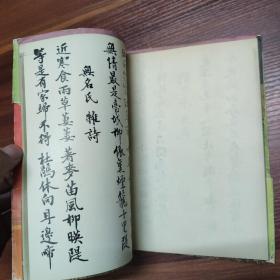 無情最是臺城柳依舊煙籠十里隄
無名氏 雜詩
近寒食雨草萋萋著麥苗風柳暎隄
等是有家歸不得杜鵑休向耳邊啼